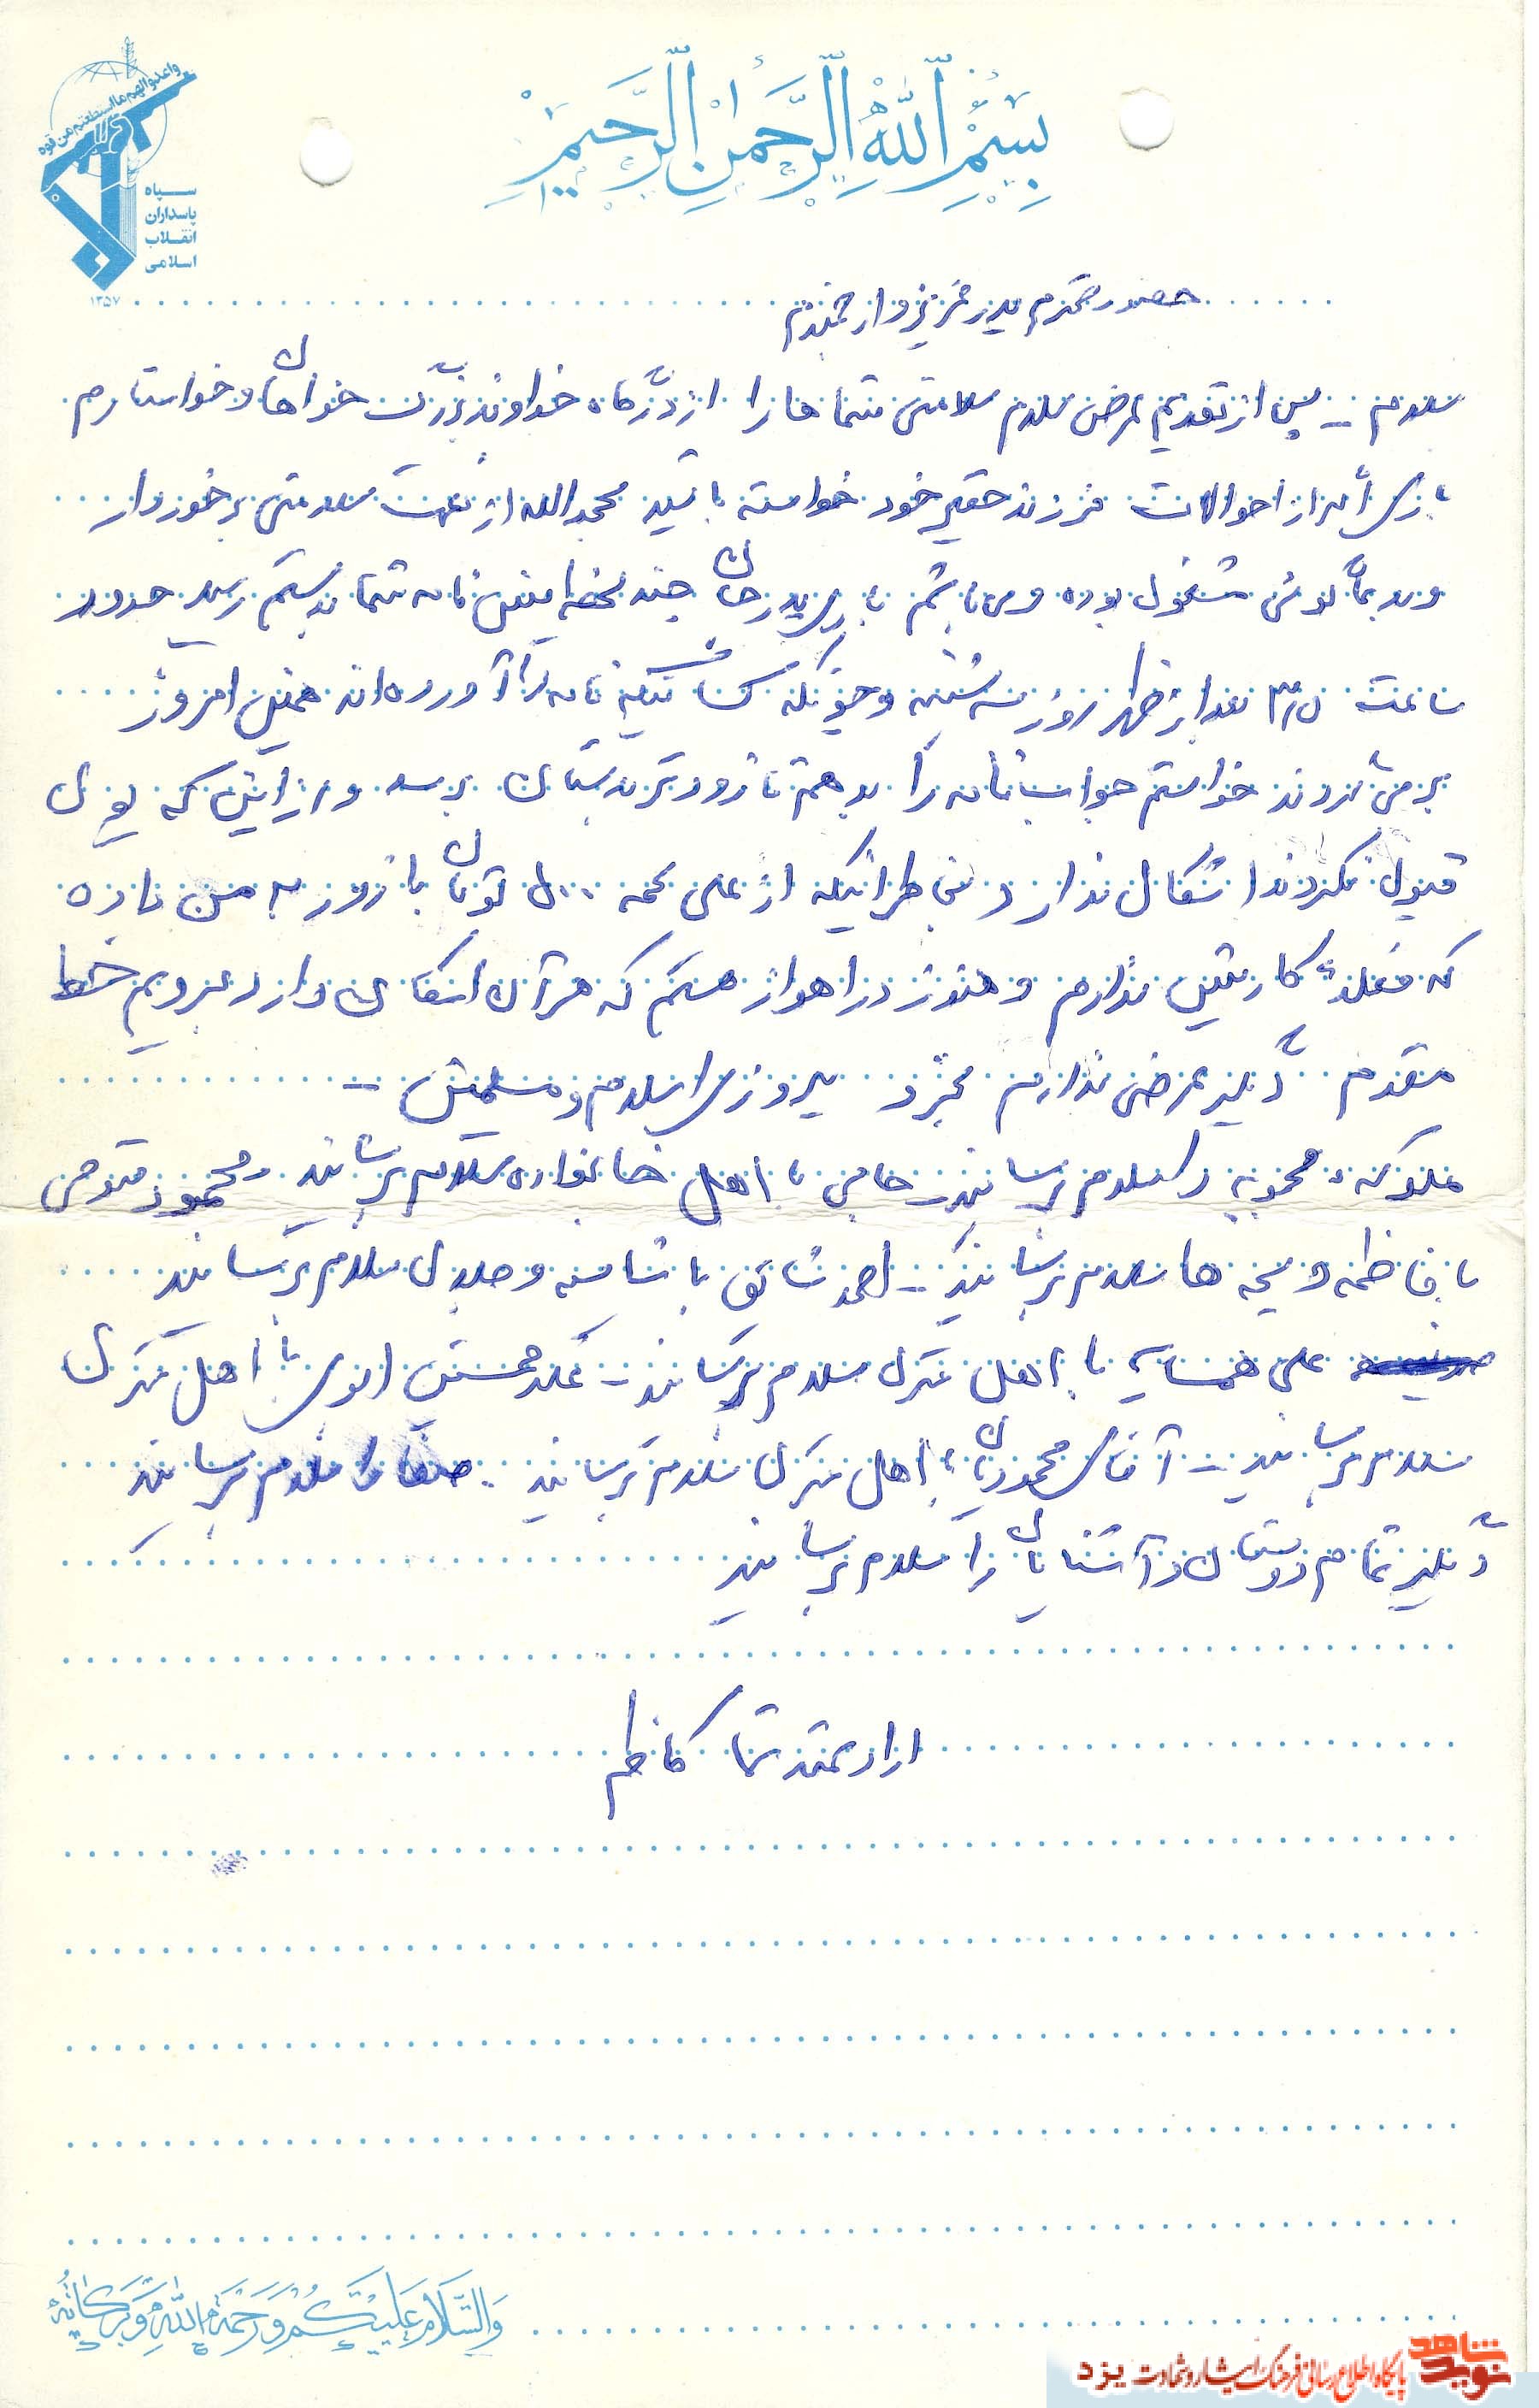 بِسْمِ اللهِ الرَّحْمٰنِ الرَّحيمِ
واعدوا لهم ما استطعتم من قوه
سپاه
پاسداران
انقلاب
اسلامی
۱۳۵۷
حضور محترم پدر عزیز و ارجمندم
سلام - پس از تقدیم عرض سلام سلامتی شماها را از درگاه خداوند بزرگ خواهان و خواستارم
باری اگر از احوالات فرزند حقیر خود خواسته باشید بحمدالله از نعمت سلامتی برخوردار
و بدعاگوئی مشغول بوده و می باشم باری پدر جان چند لحظه پیش نامه شما بدستم رسید حدود
ساعت بعد از ظهر روز سه شنبه و چونکه کسانیکه نامه را آورده اند همین امروز
برمی گردند خواستم جواب نامه را بدهم تا زودتر بدستتان برسد و از اینکه پول
قبول نکردند اشکال ندارد بخاطر اینکه از علی تومان باز روز به من داده
که فعلاً کار بیش ندارم و هنوز در اهواز هستم که هر آن امکان دارد برویم خط
مقدم دیگر عرضی ندارم بجز پیروزی اسلام و مسلمین -
سلام برسانید - حاجی با اهل خانواده سلام برسانید محمود
با فاطمه و بچه ها سلام برسانید - احمد با و سلام برسانید
علی همسایه با اهل منزل سلام برسانید - غلامحسین با اهل منزل
سلام برسانید - آقای با اهل منزل سلام برسانید . سلام برسانید
دیگر تمام دوستان و آشنایان را سلام برسانید
ارادتمند شما کاظم
وَالسَّلامُ عَلَيْكُمْ وَرَحْمَةُ اللهِ وَبَرَكاتُهُ
نوید شاهد
پایگاه اطلاع رسانی فرهنگ ایثار و شهادت یزد